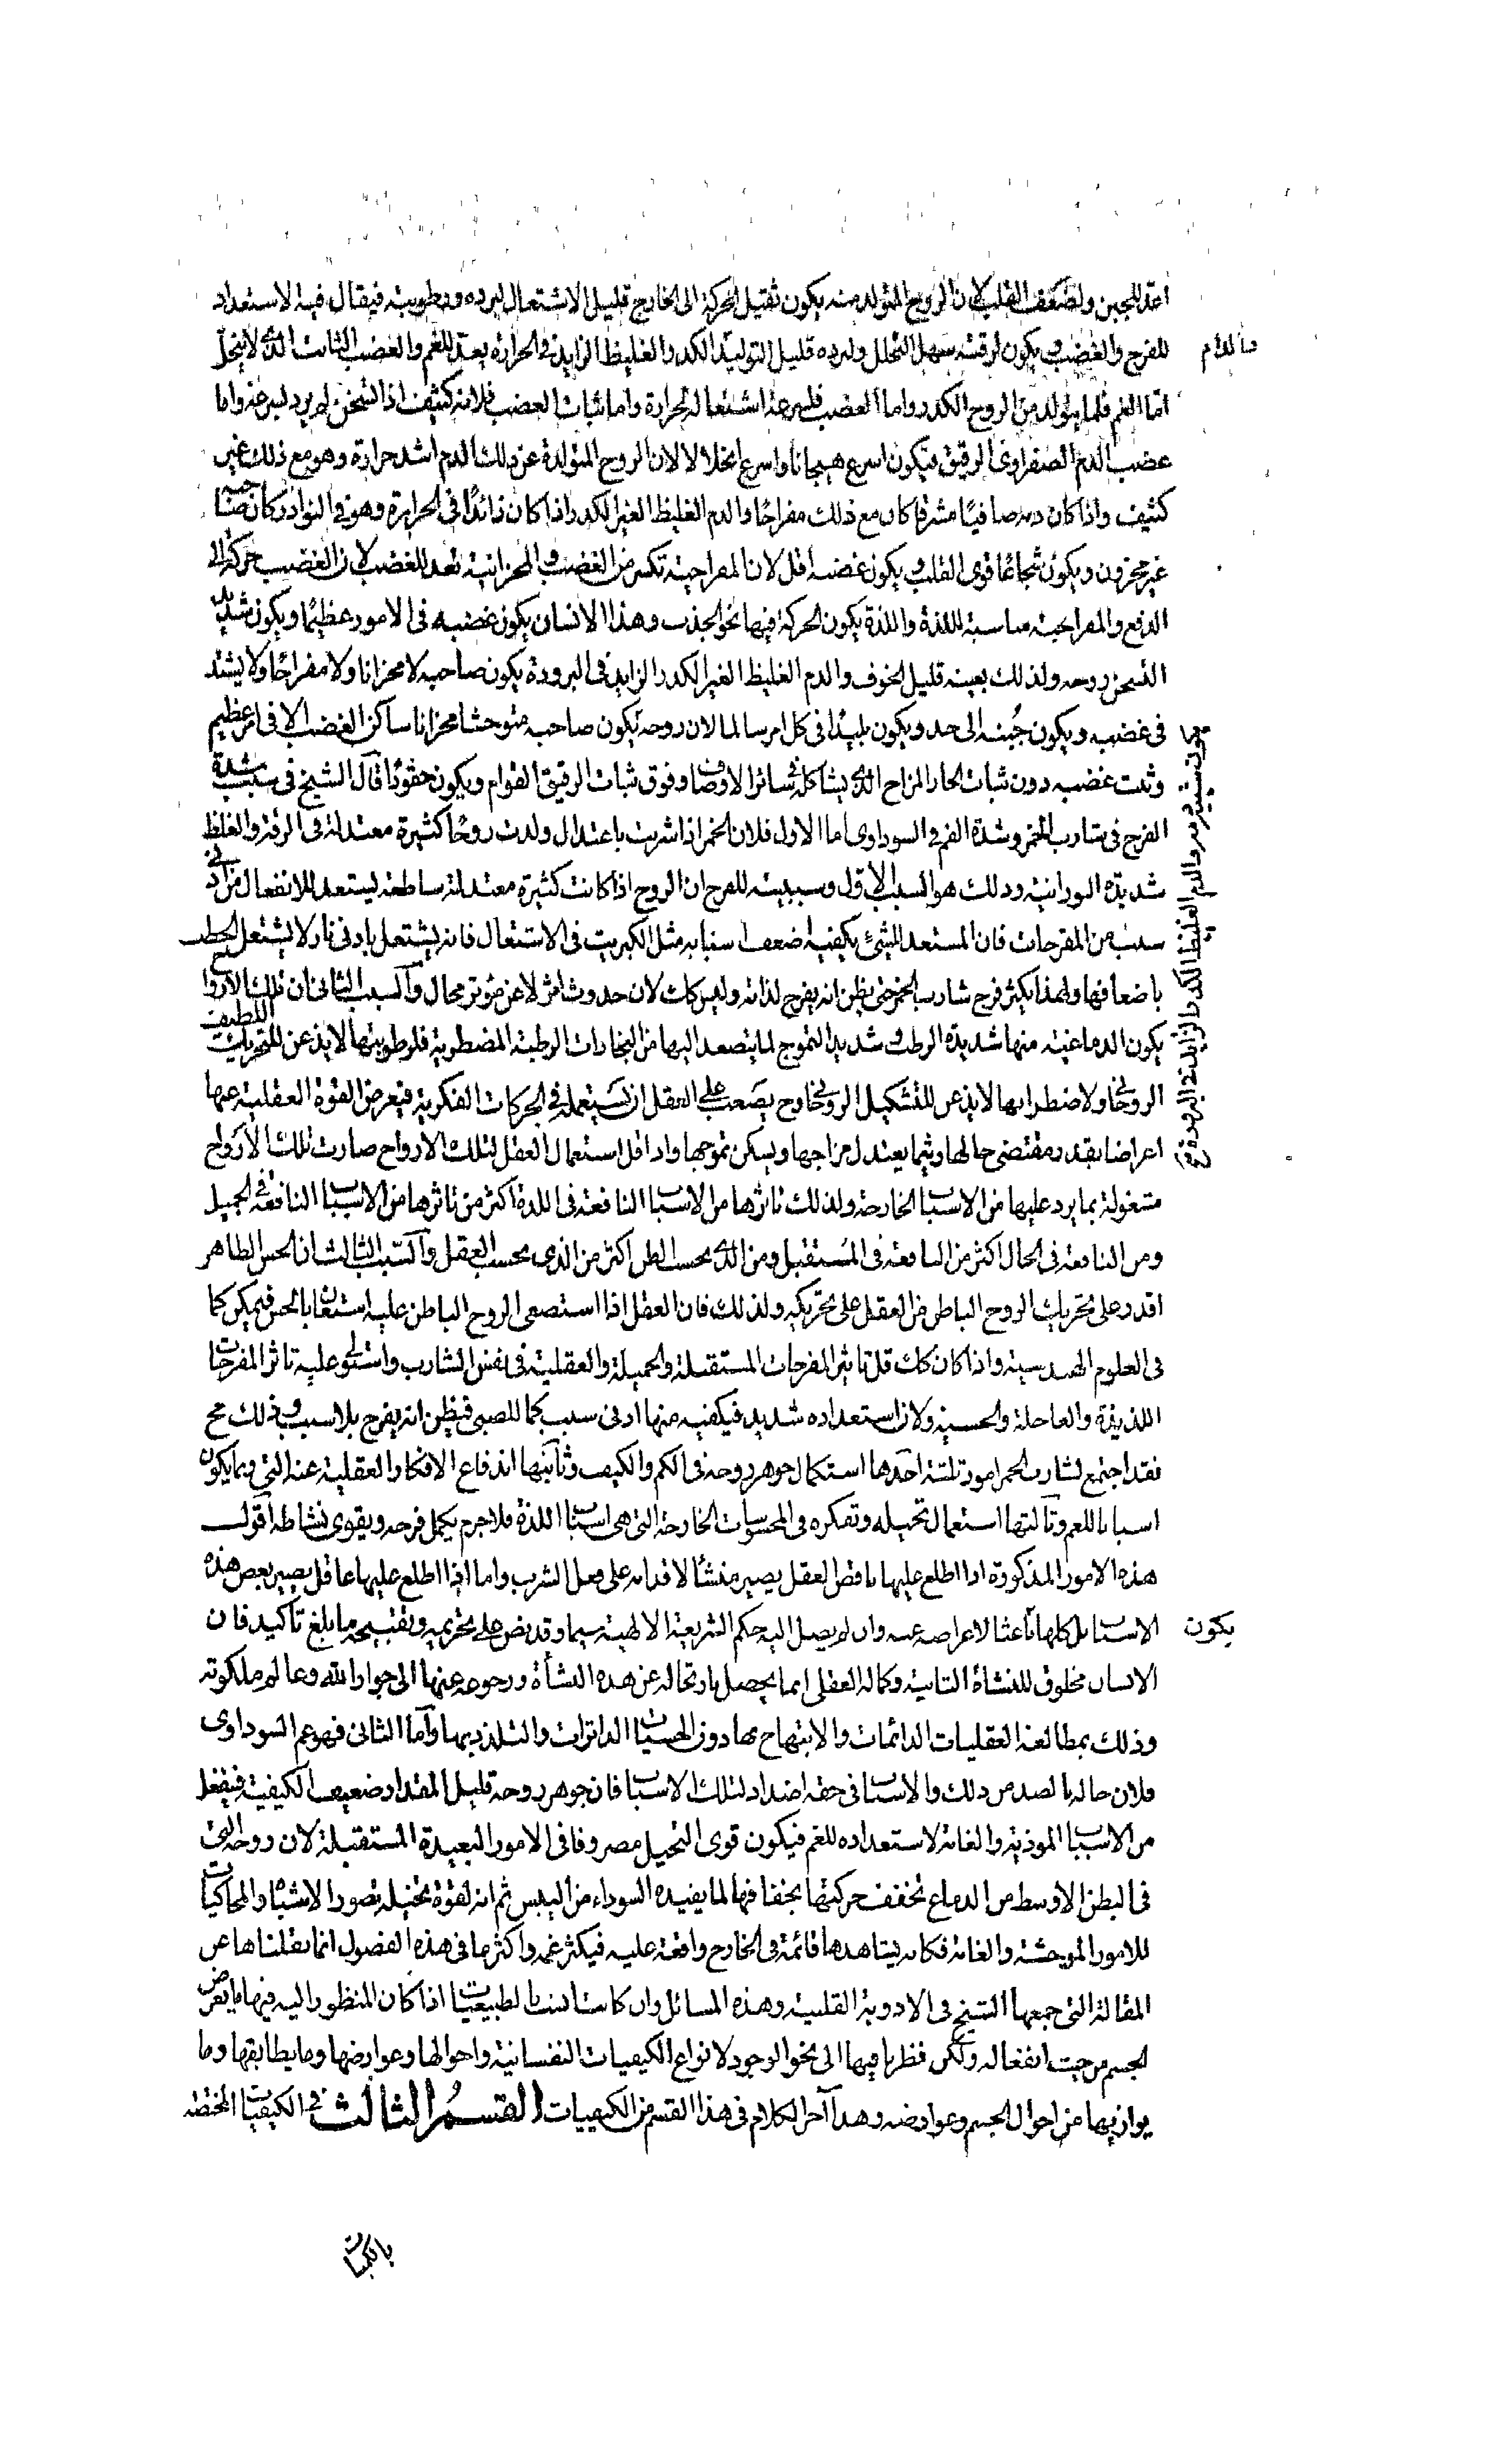 اعد للجبن ولضعف القلب لان الروح المتولد منه يكون ثقيل الحركة الى الخارج قليل الاشتعال لبرده ورطوبته فيقال فيه لاستعداد
للفرح والغضب ويكون لرقته سهل التحلل ولبرده قليل التوليد الكدر والغليظ الزايد فى الحرارة يعد للغم والغضب الثابت الذى لا ينحل
اما الغم فلما يتولد من الروح الكدر واما الغضب فلسرعة اشتعاله لحرارة واما ثبات الغضب فلانه كثيف اذا تسخن لم يبرد لسرعة واما
غضب الدم الصفراوى الرقيق فيكون اسرع هيجانا واسرع انحلالا لان الروح المتولدة عن ذلك الدم اشد حرارة وهو مع ذلك غير
كثيف واذا كان دمه صافيا مشرقا كان مع ذلك مفراحا والدم الغليظ الغير الكدر اذا كان زائدا فى الحرارة وهو فى النوادر كان صاحبه
غير محزون ويكون شجاعا قوى القلب ويكون غضبه اقل لان المفراحية تكسر من الغضب والمحزانية تعد للغضب لان الغضب حركة الى
الدفع والمفراحية مناسبة للذة واللذة يكون الحركة فيها نحو الجذب وهذا الانسان يكون غضبه فى الامور عظيما ويكون شديد
التسخن روحه ولذلك بعينه قليل الخوف والدم الغليظ الغير الكدر الزايد فى البرودة يكون صاحبه لا محزانا ولا مفراحا ولا يشتد
فى غضبه ويكون جبنه الى حد ويكون بليدا فى كل امر سالما لان روحه يكون صاحبه متوحشا محزانا ساكن الغضب الا فى امر عظيم
وثبت غضبه دون ثبات الحار المزاج الذى يشاكله فى سائر الاوصاف وفوق ثبات الرقيق القوام ويكون حقودا قال الشيخ فى سبب شدة
الفرح فى شارب الخمر وشدة الغم فى السوداوى اما الاول فلان الخمر اذا شربت باعتدال ولدت روحا كثيرة معتدلة فى الرقة والغلظ
شديدة النورانية وذلك هو السبب الاول وسببيته للفرح ان الروح اذا كانت كثيرة معتدلة ساطعة يستعد للانفعال من ادنى
سبب من المفرحات فان المستعد للشئ يكفيه اضعف اسبابه مثل الكبريت فى الاشتعال فانه يشتعل بادنى نار لا يشتعل الحطب
باضعافها ولهذا يكثر فرح شارب الخمر حتى يظن انه يفرح لذاته وليس كك لان حدوث امر لا عن مؤثر محال والسبب الثانى ان تلك الارواح
يكون الدماغية منها شديدة الرطب وشديد التموج لما يتصعد اليها من البخارات الرطبة المضطربة فلرطوبتها لا يذعن للتحريك اللطيف
الروحانى ولاضطرابها لا يذعن للتشكيل الروحانى وح يصعب على العقل ان يستعمله فى الحركات الفكرية فيعرض القوة العقلية عنها
اعراضا بقدر مقتضى حالها وريثما يعتدل مزاجها ويسكن تموجها واذا قل استعمال العقل لتلك الارواح صارت تلك الارواح
مشغولة بما يرد عليها من الاسباب الخارجة ولذلك تاثرها من الاسباب النافعة فى اللذة اكثر من تاثرها من الاسباب النافعة فى الجميل
ومن النافعة فى الحال اكثر من النافعة فى المستقبل ومن الذى بحسب الظن اكثر من الذى بحسب العقل والسبب الثالث ان الحس الظاهر
اقدر على تحريك الروح الباطن من العقل على تحريكه ولذلك فان العقل اذا استصعى الروح الباطن عليه استعان بالحس فيمكن كما
فى العلوم الهندسية واذا كان كك قل تاثير المفرحات المستقبلة والجميلة والعقلية فى نفس الشارب واستولى عليه تاثر المفرحات
اللذيذة والعاجلة والحسية ولان استعداده شديد فيكفيه منها ادنى سبب كما للصبى فيظن انه يفرح بلا سبب وذلك مح
فقد اجتمع لشارب الخمر امور ثلثة احدها استكمال جوهر روحه فى الكم والكيف وثانيها اندفاع الافكار العقلية عنه التى ربما يكون
اسبابا للغم وثالثها استعمال تخيله وتفكره فى المحسوسات الخارجة التى هى اسباب اللذة فلا جرم يكمل فرحه ويقوى نشاطه اقول
هذه الامور المذكورة اذا اطلع عليها ناقص العقل يصير منشأ لاقدامه على فعل الشرب واما اذا اطلع عليها عاقل يصير بعض هذه
الاسباب بل كلها باعثا لاعراضه عنه وان لم يصل اليه حكم الشريعة الالهية سيما وقد نص على تحريمه وتقبيحه بابلغ تاكيد فان
يكون
الانسان مخلوق للنشاة الثانية وكماله العقلى انما يحصل بارتحاله عن هذه النشأة ورجوعه عنها الى جوار الله وعالم ملكوته
وذلك بمطالعة العقليات الدائمات والابتهاج بها دون الحسيات الداثرات والتلذذ بها واما الثانى فهو غم السوداوى
فلان حاله بالضد من ذلك والاسباب فى حقه اضداد لتلك الاسباب فان جوهر روحه قليل المقدار ضعيف الكيفية فينفعل
من الاسباب الموذية والغامة لاستعداده للغم فيكون قوى التخيل مصروفا فى الامور البعيدة المستقبلة لان روحه التى
فى البطن الاوسط من الدماغ تخفف حركتها بجفافها لما يفيده السوداء من اليبس ثم انه لقوة تخيله تصور الاشباه والمحاكيات
للامور الموحشة والغامة فكانه يشاهدها قائمة فى الخارج واقعة عليه فيكثر غمه واكثر ما فى هذه الفصول انما نقلناها من
المقالة التى جمعها الشيخ فى الادوية القلبية وهذه المسائل وان كانت انسب بالطبيعيات اذا كان المنظور اليه فيها ما يعرض
الجسم من حيث انفعاله ولكن نظرنا فيها الى نحو الوجود لانواع الكيفيات النفسانية واحوالها وعوارضها وما يطابقها وما
يوازيها من احوال الجسم وعوارضه وهذا آخر الكلام فى هذا القسم من الكيفيات القسم الثالث فى الكيفيات المختصة
بالكميات